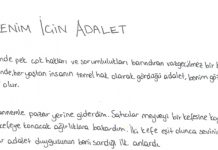 ENİM İÇİN ADALET
inde pek çok hakları ve sorumlulukları barındıran vazgeçilmez bir k
inde, her yaştan insanın temel hak olarak gördüğü adalet, benim gö
olur.
annemle pazar yerine giderdim. Satıcılar meyveyi bir kefesine koy
kefeye konacak ağırlıklara bakardım. İki kefe eşit olunca sevini
r adalet duygusunun beni sardığı ilk anlardı